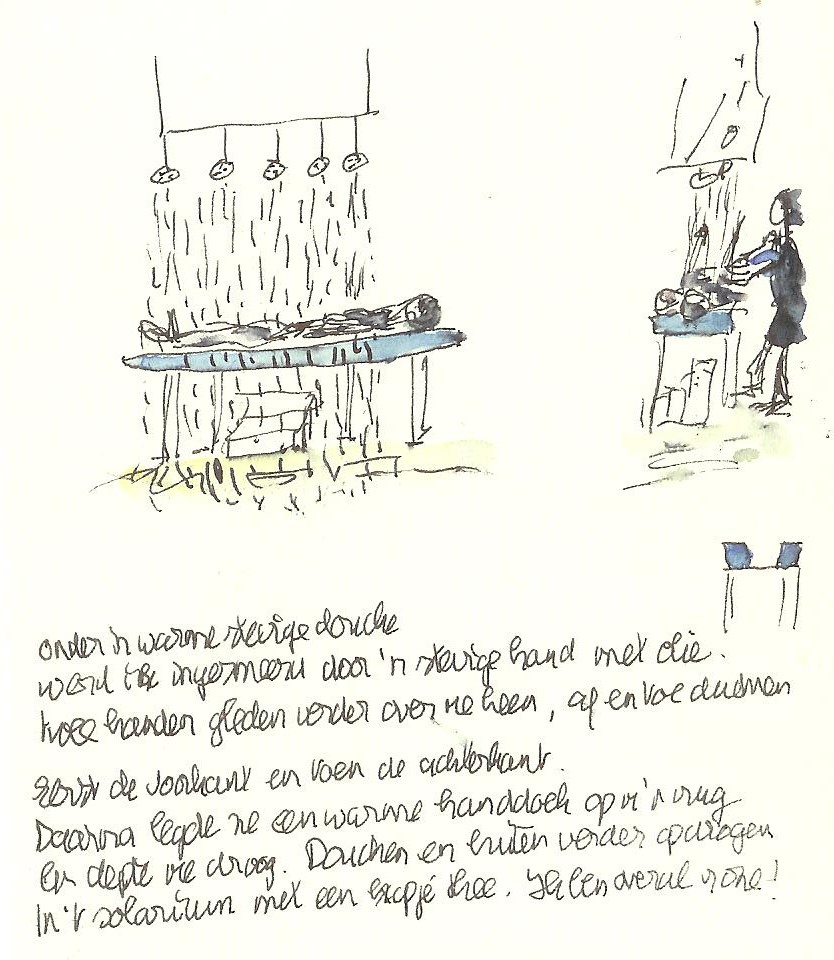 onder 'n warme stevige douche
werd ik ingesmeerd door 'n stevige hand met olie.
twee handen gleden verder over me heen, af en toe duwen
Eerst de voorkant en toen de achterkant.
Daarna legde ze een warme handdoek op m'n rug
En depte me droog. Douchen en buiten verder opdrogen
In 't solarium met een kopje thee. Ik ben overal zone!